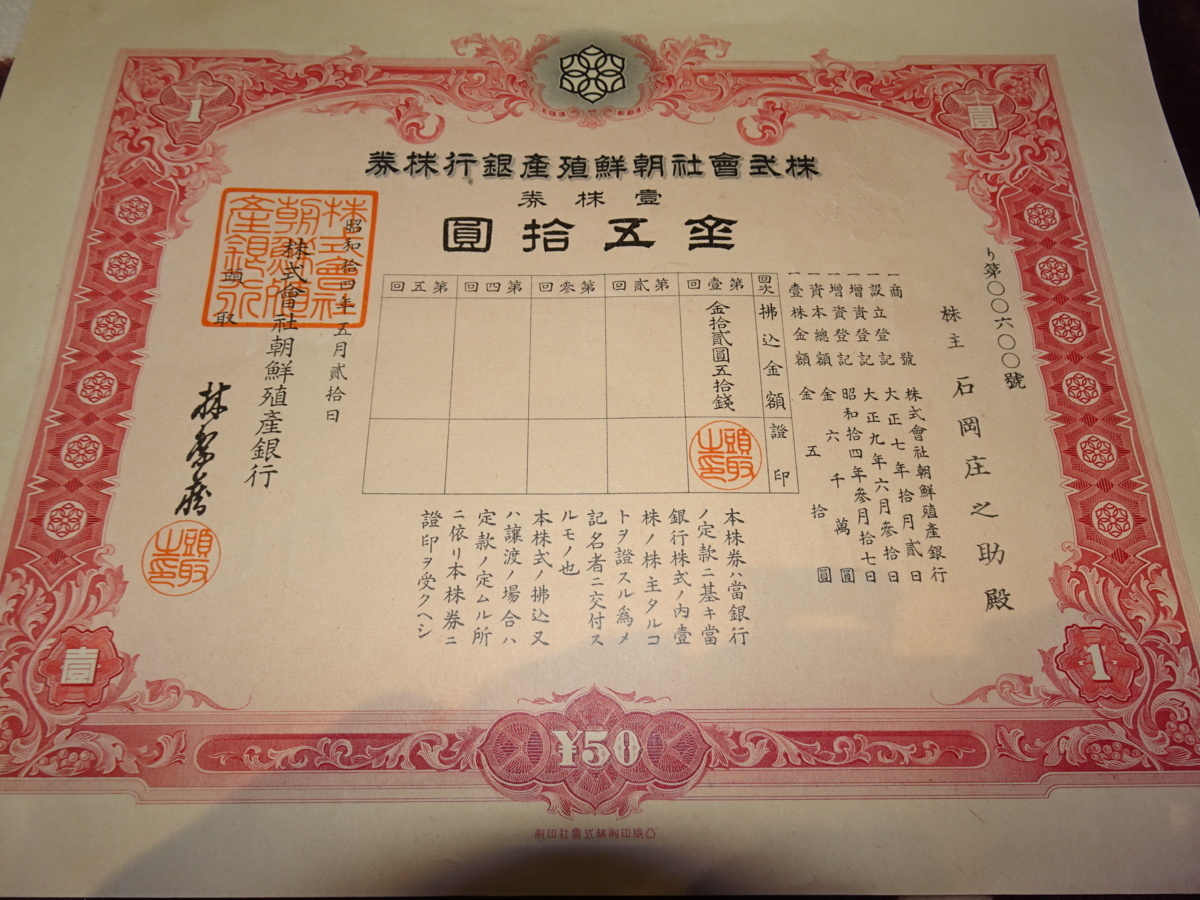 株式會社朝鮮殖產銀行株券
壹株券
金五拾圓
1
壹
り第〇〇六〇〇號
株主 石岡庄之助殿
一商號 株式會社朝鮮殖產銀行
一設立登記 大正七年拾月貳日
一增資登記 大正九年六月參拾日
一增資登記 昭和拾四年參月拾七日
一資本總額 金六千萬圓
一壹株金額 金五拾圓
回次 拂込金額 證印
第壹回 金拾貳圓五拾錢
頭取之印
第貳回
第參回
第四回
第五回
本株券ハ當銀行
ノ定款ニ基キ當
銀行株式ノ內壹
株ノ株主タルコ
トヲ證スル爲メ
記名者ニ交付ス
ルモノ也
本株式ノ拂込又
ハ讓渡ノ場合ハ
定款ノ定ムル所
ニ依リ本株券ニ
證印ヲ受クヘシ
昭和拾四年五月貳拾日
株式會社朝鮮殖產銀行
頭取
林繁藏
頭取之印
株式會社朝鮮殖產銀行
壹
1
¥50
凸版印刷株式會社印刷